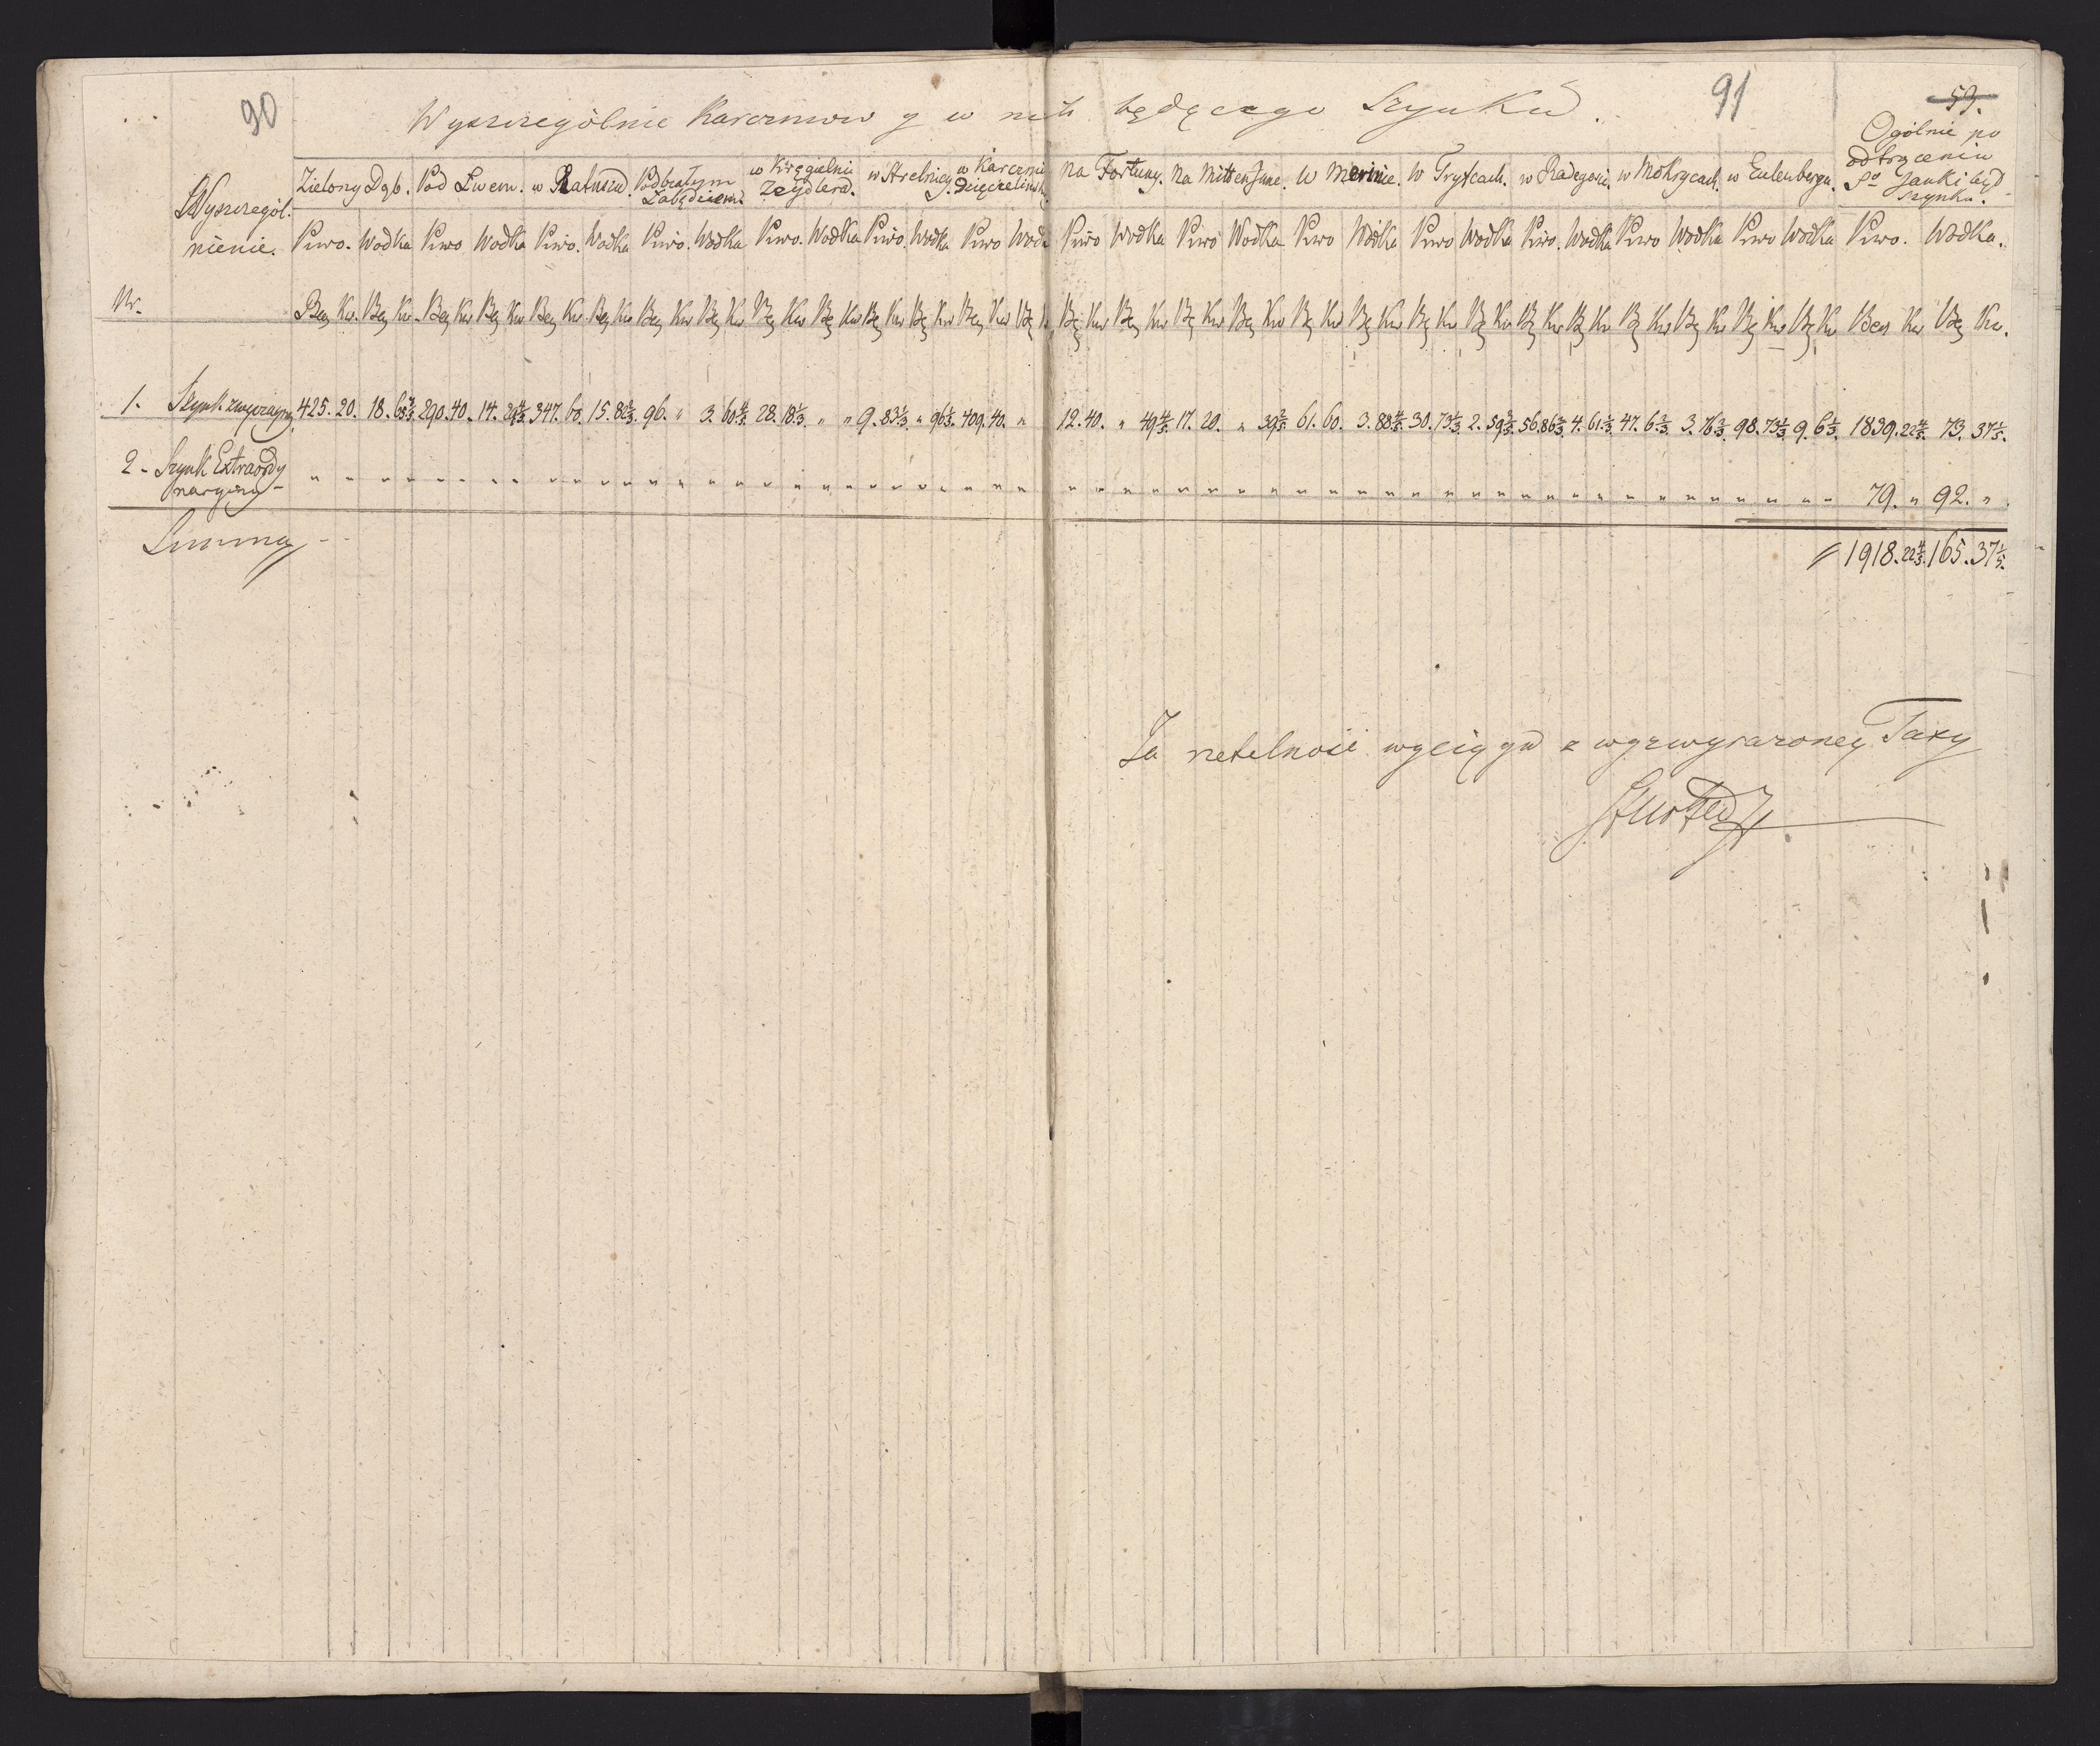 90
91
59.
Wyszczególnie Karczmow y w nich będącego Szynku.
Wyszczegól-
nienie.
Zielony Dąb. Pod Lwem. w Ratuszu. Pod białym Łabędziem. w Kręgielni Zeydlera. w Strelnicy. w Karczmie J. na Fortuny. na Mittensune. w Merinie. w Trytcach. w Radegoni. w Mokrycach. w Eulenbergu.
Ogólnie po
odtrąceniu
Szynku.
Piwo. Wodka Piwo Wodka Piwo. Wodka Piwo. Wodka Piwo. Wodka Piwo. Wodka Piwo Wodk Piwo Wodka Piwo Wodka Piwo Wodka Piwo Wodka Piwo. Wodka Piwo Wodka Piwo Wodka Piwo. Wodka.
Nr. Becz Kw. Becz Kw. Becz Kw Becz Kw Becz Kw Becz Kw Becz Kw Becz Kw Becz Kw Becz Kw Becz Kw Becz Kw Becz Kw Becz Becz Kw Becz Kw Becz Kw Becz Kw Becz Kw Becz Kw Becz Kw Becz Kw Becz Kw Becz Kw Becz Kw Becz Kw Becz Kw Becz Kw Becz Kw Becz Kw.
1. Szynk zwyczayny 425. 20. 18. 290. 40. 14. 29 4/5. 347. 60. 15. 96. " 3. 60 4/5. 28. 18 1/3. " " 9. 83 1/3. " 96 1/3. 409. 40. " 12. 40. " 49 4/5. 17. 20. " 39 2/5. 61. 60. 3. 88 4/5. 30. 73 1/3. 2. 59 2/5. 56. 86 2/3. 4. 61 1/3. 47. 6 2/3. 3. 76 2/3. 98. 73 1/3. 9. 6 1/3. 1839. 22 4/5. 73. 37 1/5.
2 - Szynk Extraordy
naryiny - " " " " " " " " " " " " " " " " " " " " " " " " " " " " " " " " " " " " " " " " " " " " " " " " " " " " " " " " 79. " 92. "
Summa - - 1918. 22 4/5. 165. 37 1/5.
Za rzetelność wyciągu z wyzwyrażoney Taxy